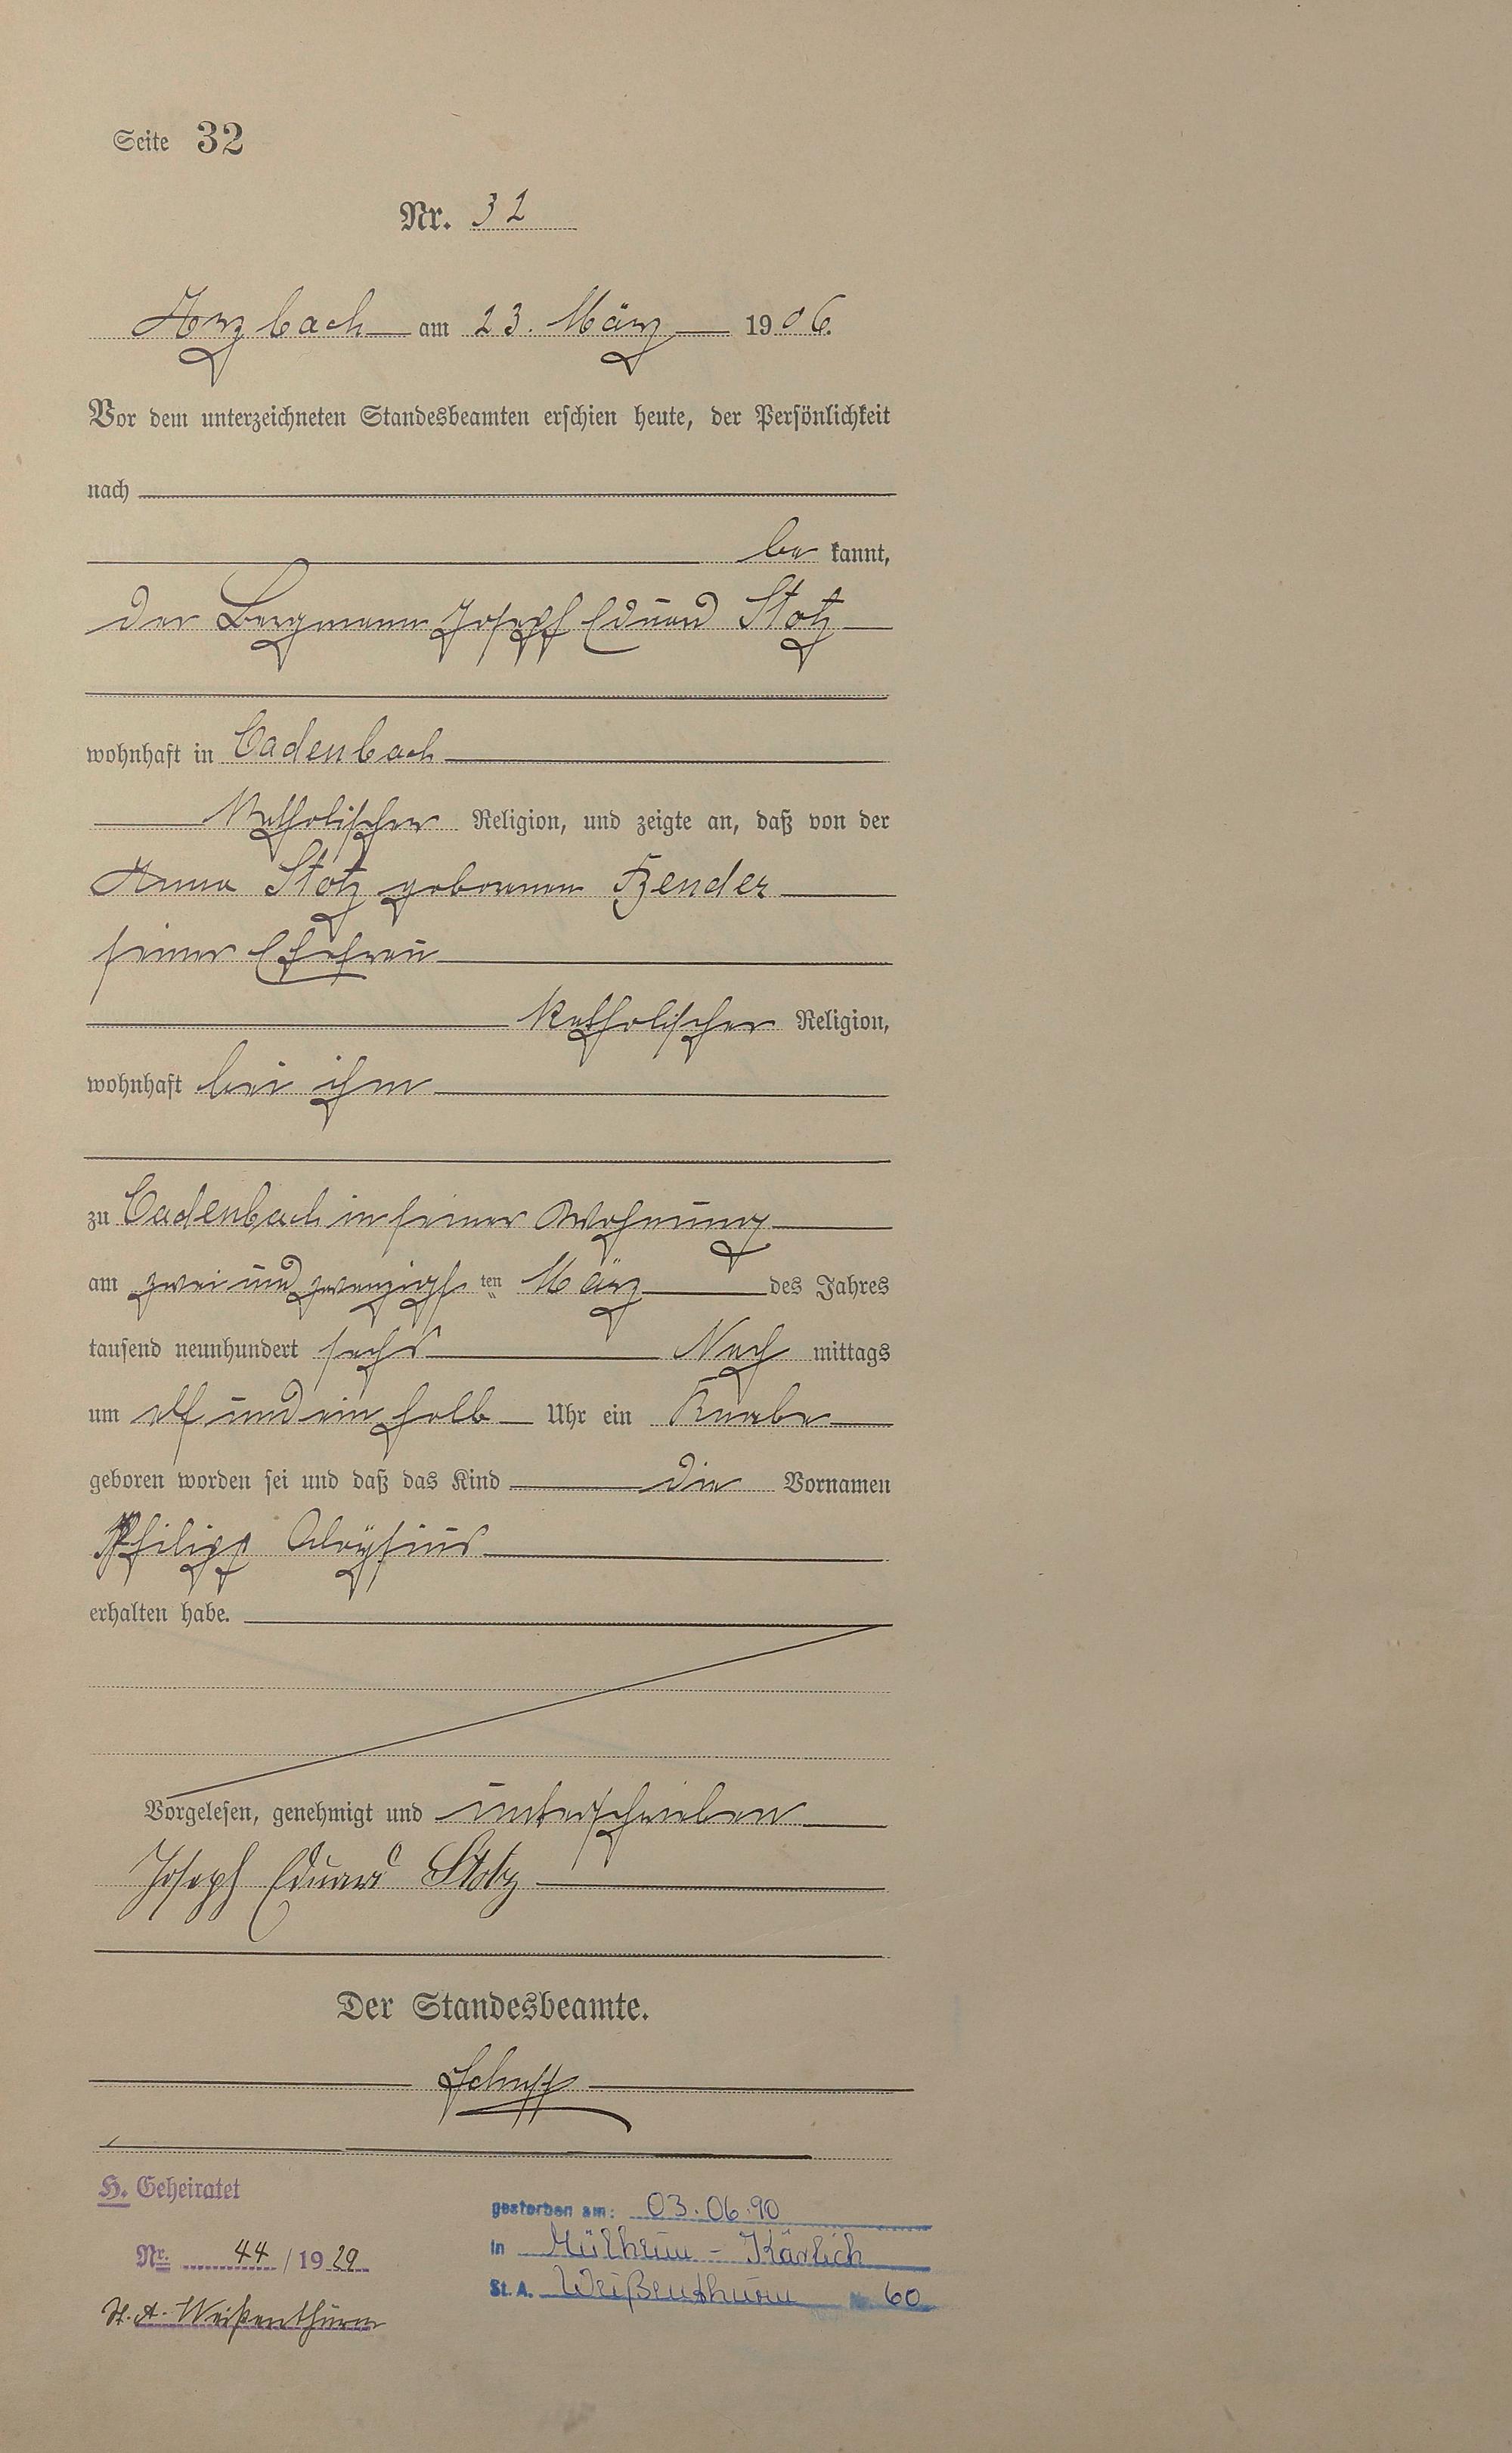 Seite 32
Nr. 32
Arzbach am 23. März 1906.
Vor dem unterzeichneten Standesbeamten erschien heute, der Persönlichkeit
nach
be kannt,
der Bergmann Joseph Eduard Stotz
wohnhaft in Cadenbach
katholischer Religion, und zeigte an, daß von der
Anna Stotz geborenen Zender
seiner Ehefrau
katholischer Religion,
wohnhaft bei ihm
zu Cadenbach in seiner Wohnung
am zwei und zwanzigsten März des Jahres
tausend neunhundert sechs Nach mittags
um elf und ein halb Uhr ein Knabe
geboren worden sei und daß das Kind die Vornamen
Philipp Aloysius
erhalten habe.
Vorgelesen, genehmigt und unterschrieben
Joseph Eduard Stotz
Der Standesbeamte.
H. Geheiratet
gestorben am: 03.06.90
Nr. 44 / 1929
in Mülheim - Kärlich
St. A. Weißenthurm
St. A. Weißenthurm 60